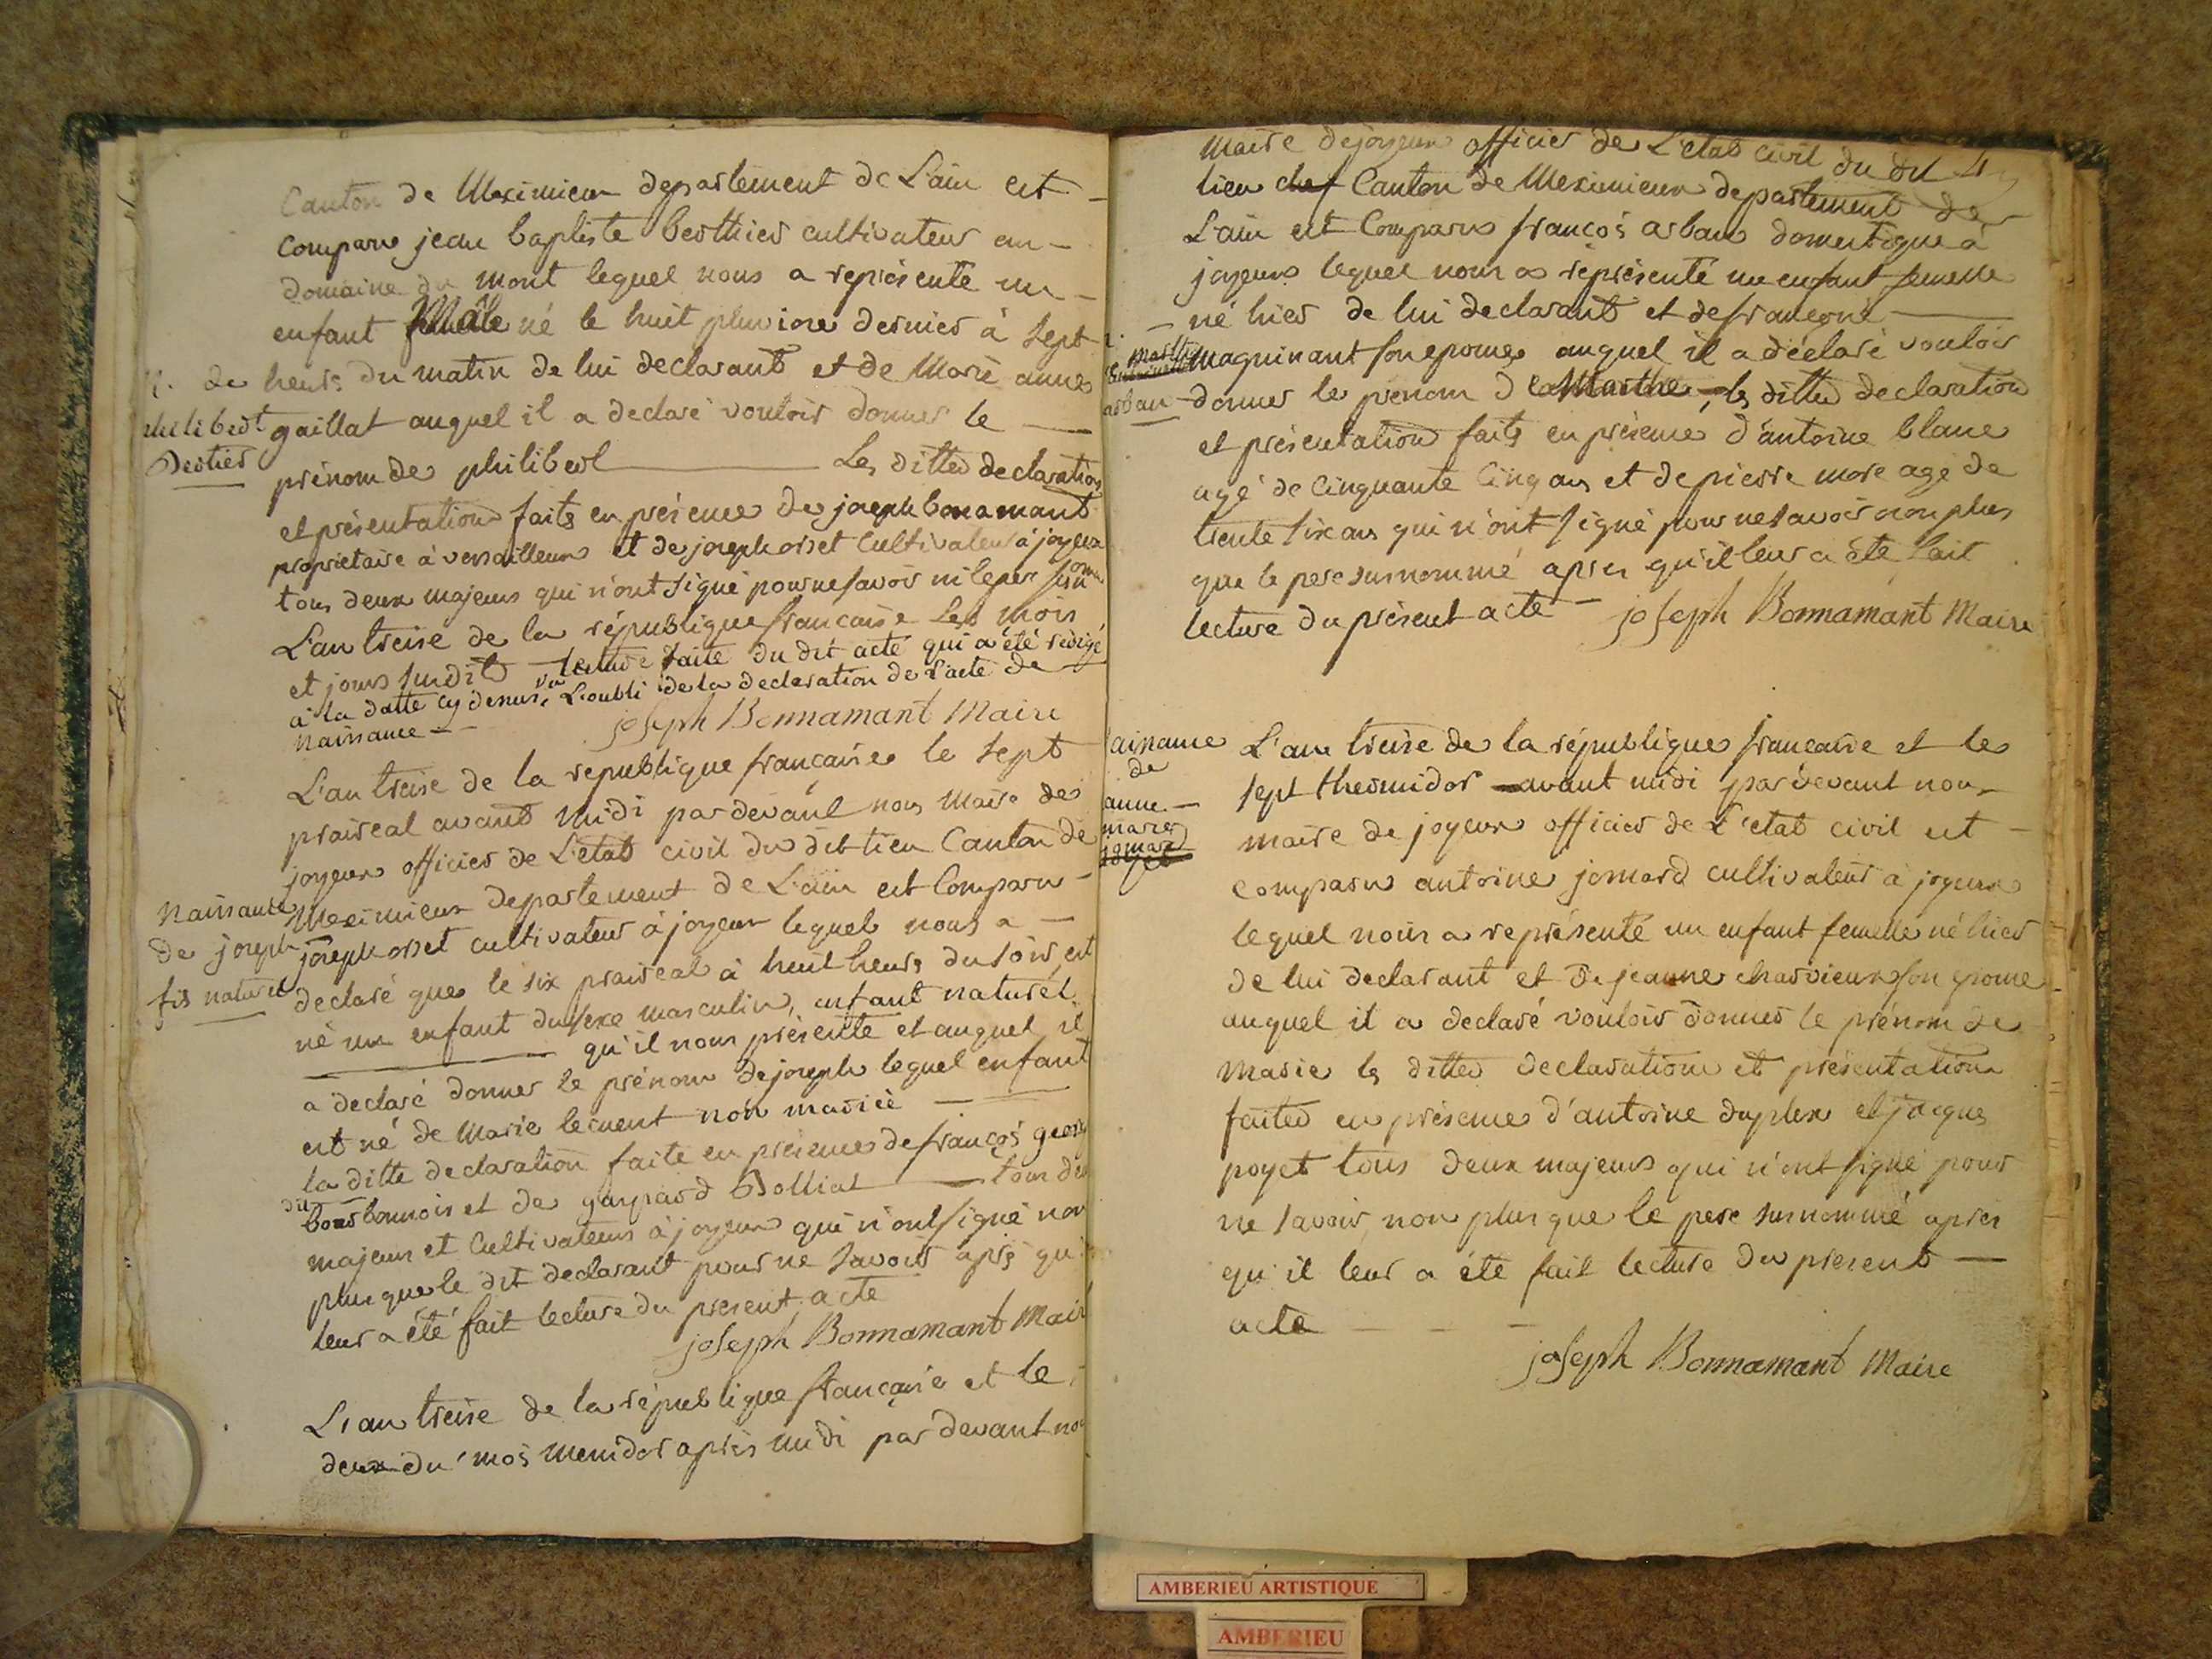 Canton de Meximieux departement de L'ain est
comparu jean baptiste berthier cultivateur au
domaine du mont lequel nous a représenté un
enfant Mâle né le huit pluviose dernier à sept
N. de heurs du matin de lui declarant et de Marie anne
philibert gaillat auquel il a declaré vouloir donner le
Bertier
prénom de philibert Les dittes declaration
et présentation faits en présence de joseph bonamant
proprietaire à versailleux et de joseph orset Cultivateur à joyeux
tous deux majeurs qui n'ont signé pour ne savoir ni le per
L'an treise de la république francaise Les mois
et jours susdits lecture faite du dit acte qui a été redigé
à la datte cy dessus, vu L'oubli de la declaration de L'acte de
naissance
joseph Bonnamant Maire
L'an treise de la republique française le sept
praireal avant Midi par devant nous Maire de
joyeux officier de L'etat civil du dit lieu Canton de
naissance Meximieux departement de L'ain est Comparu
de joseph joseph orset cultivateur à joyeux lequel nous a
fis naturel declaré que le six praireal à huit heurs du soir, est
né un enfant du sexe masculin, enfant naturel
qu'il nous présente et auquel il
a declaré donner le prénom de joseph lequel enfant
est né de Marie lecuent non mariée
la ditte declaration faite en présence de françois
dit bourbonnois et de gaspard Bolliat tous de
majeurs et Cultivateurs à joyeux qui n'ont signé non
plus que le dit declarant pour ne savoir après qu
leur a été fait lecture du present acte
joseph Bonnamant Mair
L'an treise de la république française et le
deux du mois Messidor après midi par devant no
Maire de joyeux officier de L'etat civil du dit
lieu chef Canton de Meximieux departement de
L'ain est Comparu françois arban domestique à
joyeux lequel nous a représenté un enfant femelle
né hier de lui declarant et de françoise
marthe maguinant son epouse auquel il a déclaré vouloir
arban donner le prénom de Marthe les dittes declaration
et présentation faits en présence d'antoine blanc
agé de Cinquante Cinq ans et de pierre more agé de
trente six ans qui n'ont signé pour ne savoir non plus
que le pere surnommé apres qu'il leur a été fait
lecture du présent acte joseph Bonnamant Maire
aissance
de
anne
marie
jomard
L'an treise de la république francaise et le
sept thermidor avant midi pardevant nous
maire de joyeux officier de L'etat civil est
comparu antoine jomard cultivateur à joyeux
lequel nous a représenté un enfant femelle né hier
de lui declarant et de jeanne charvieux son epouse
auquel il a declaré vouloir donner le prénom de
Marie les dittes declaration et présentation
faites en présence d'antoine duplex et jacques
poyet tous deux majeurs qui n'ont signé pour
ne savoir, non plus que le pere surnommé apres
qu'il leur a été fait lecture du present
acte
joseph Bonnamant Maire
AMBERIEU ARTISTIQUE
AMBERIEU